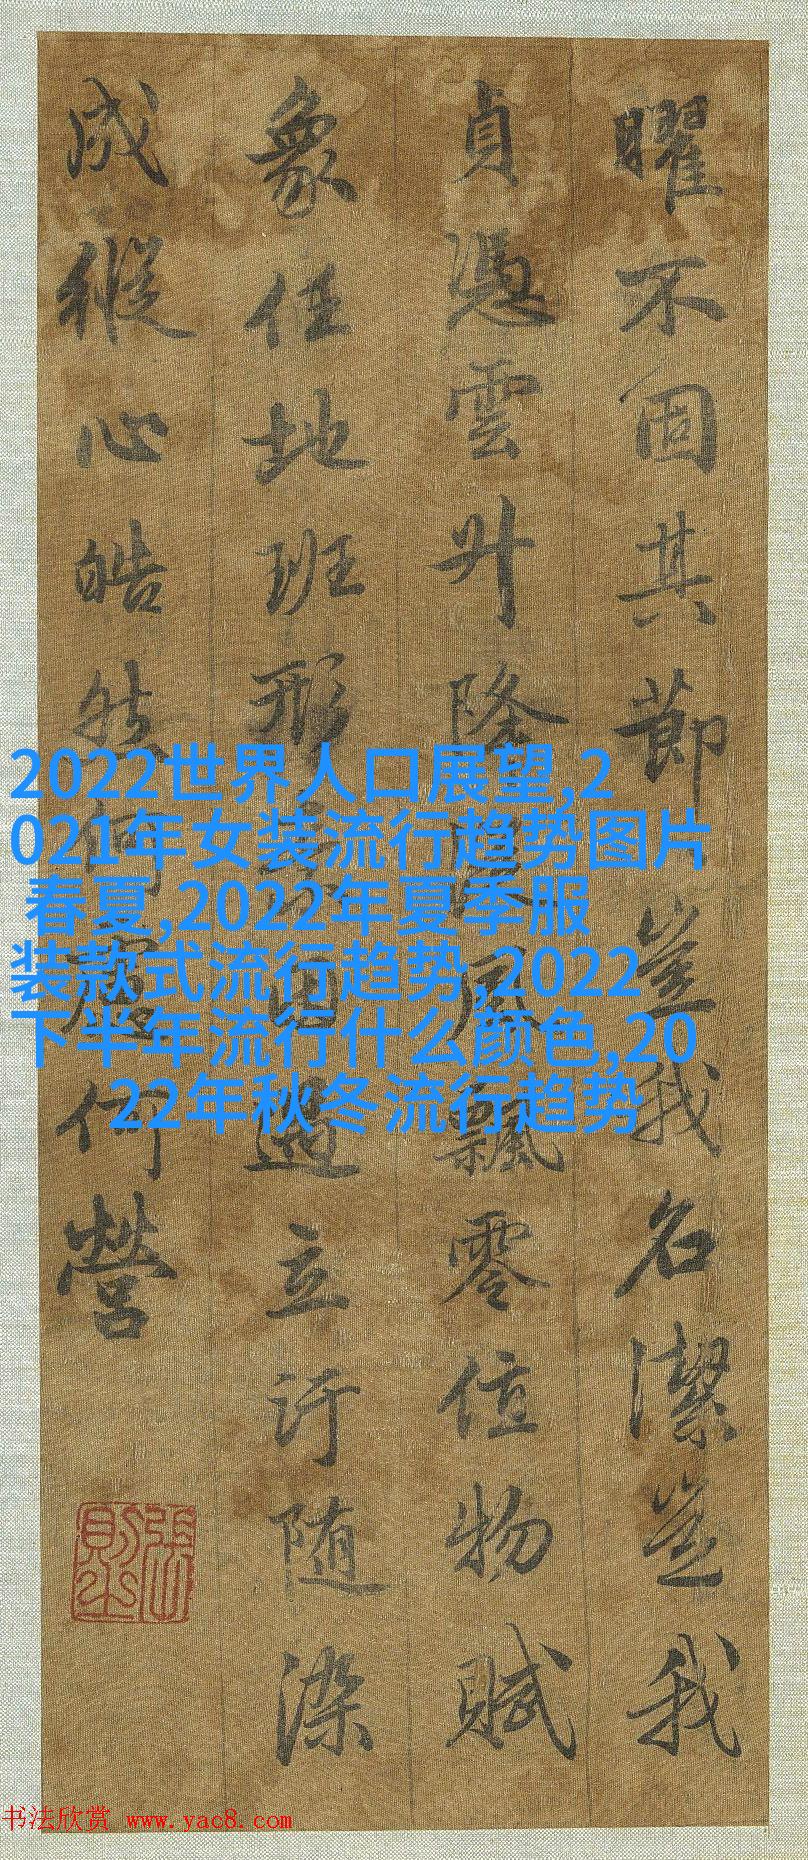 曜不固其節豈我名潔豈我
貞憑雲升降風飄零值物賦
象任地班形因過立汙随染
成縱心皓然何慮何營
張則之
2022世界人口展望,2
021年女装流行趋势图片
春夏,2022年夏季服
装款式流行趋势,2022
下半年流行什么颜色,20
22年秋冬流行趋势
书法欣赏 www.yac8.com